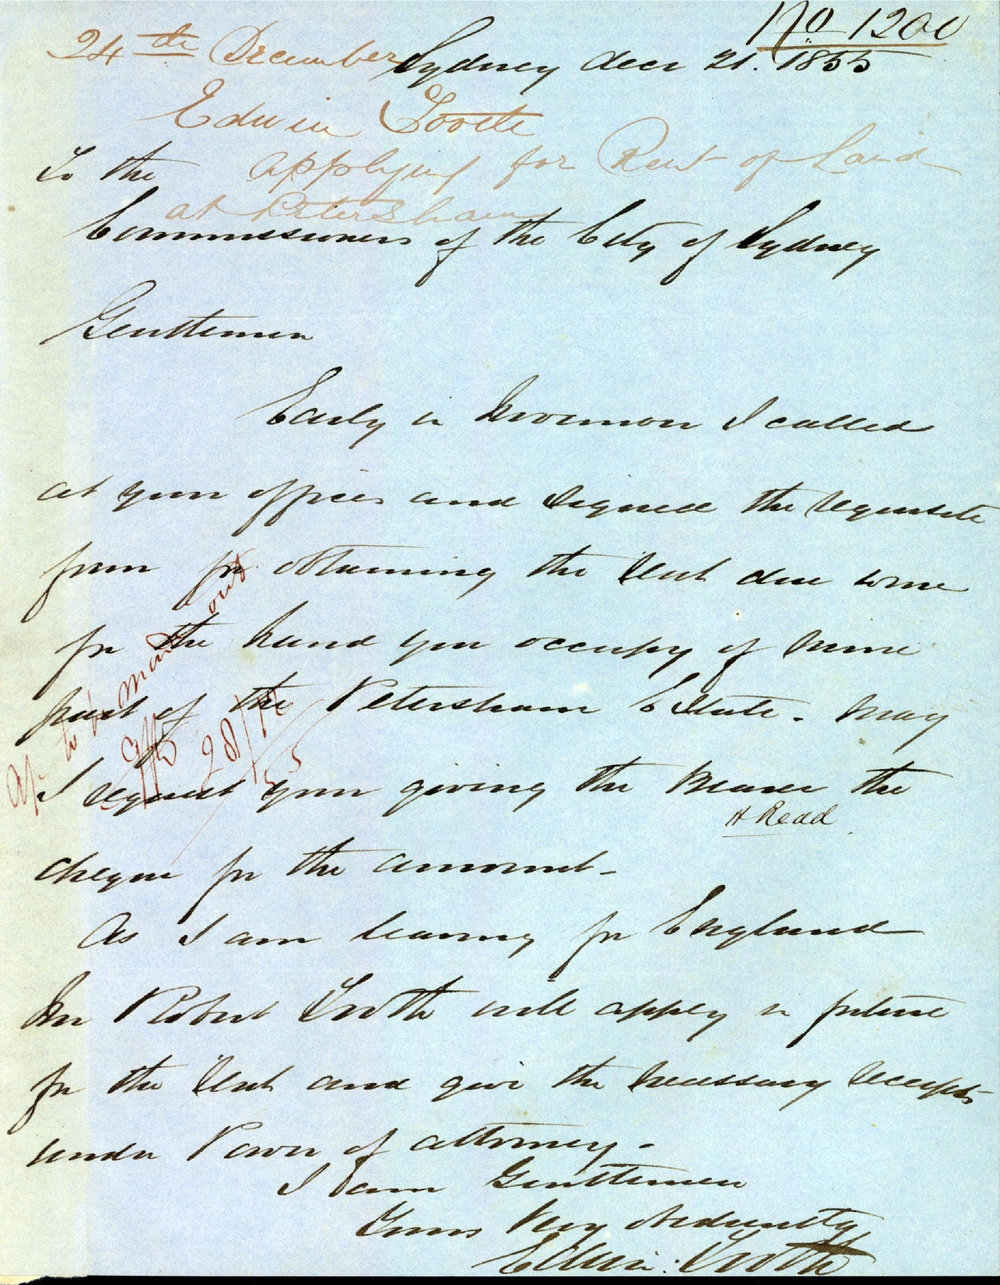 No 1200
24th December
Sydney decr 21. 1855
Edwin Tooth
To the
applying for Rent of Land
at Petersham
Commissioners of the City of Sydney
Gentlemen
Early in November I called
at your offices and signed the requisite
form for obtaining the Rent due to me
for the Land you occupy of mine
part of the Petersham Estate. May
I request your giving the Bearer the
H Read
cheque for the amount.
As I am leaving for England
Mr Robert Tooth will apply in future
for the Rent and give the necessary receipts
under Power of attorney.
I am Gentlemen
Yours Very obediently
Edwin: Tooth
out
28/12
55